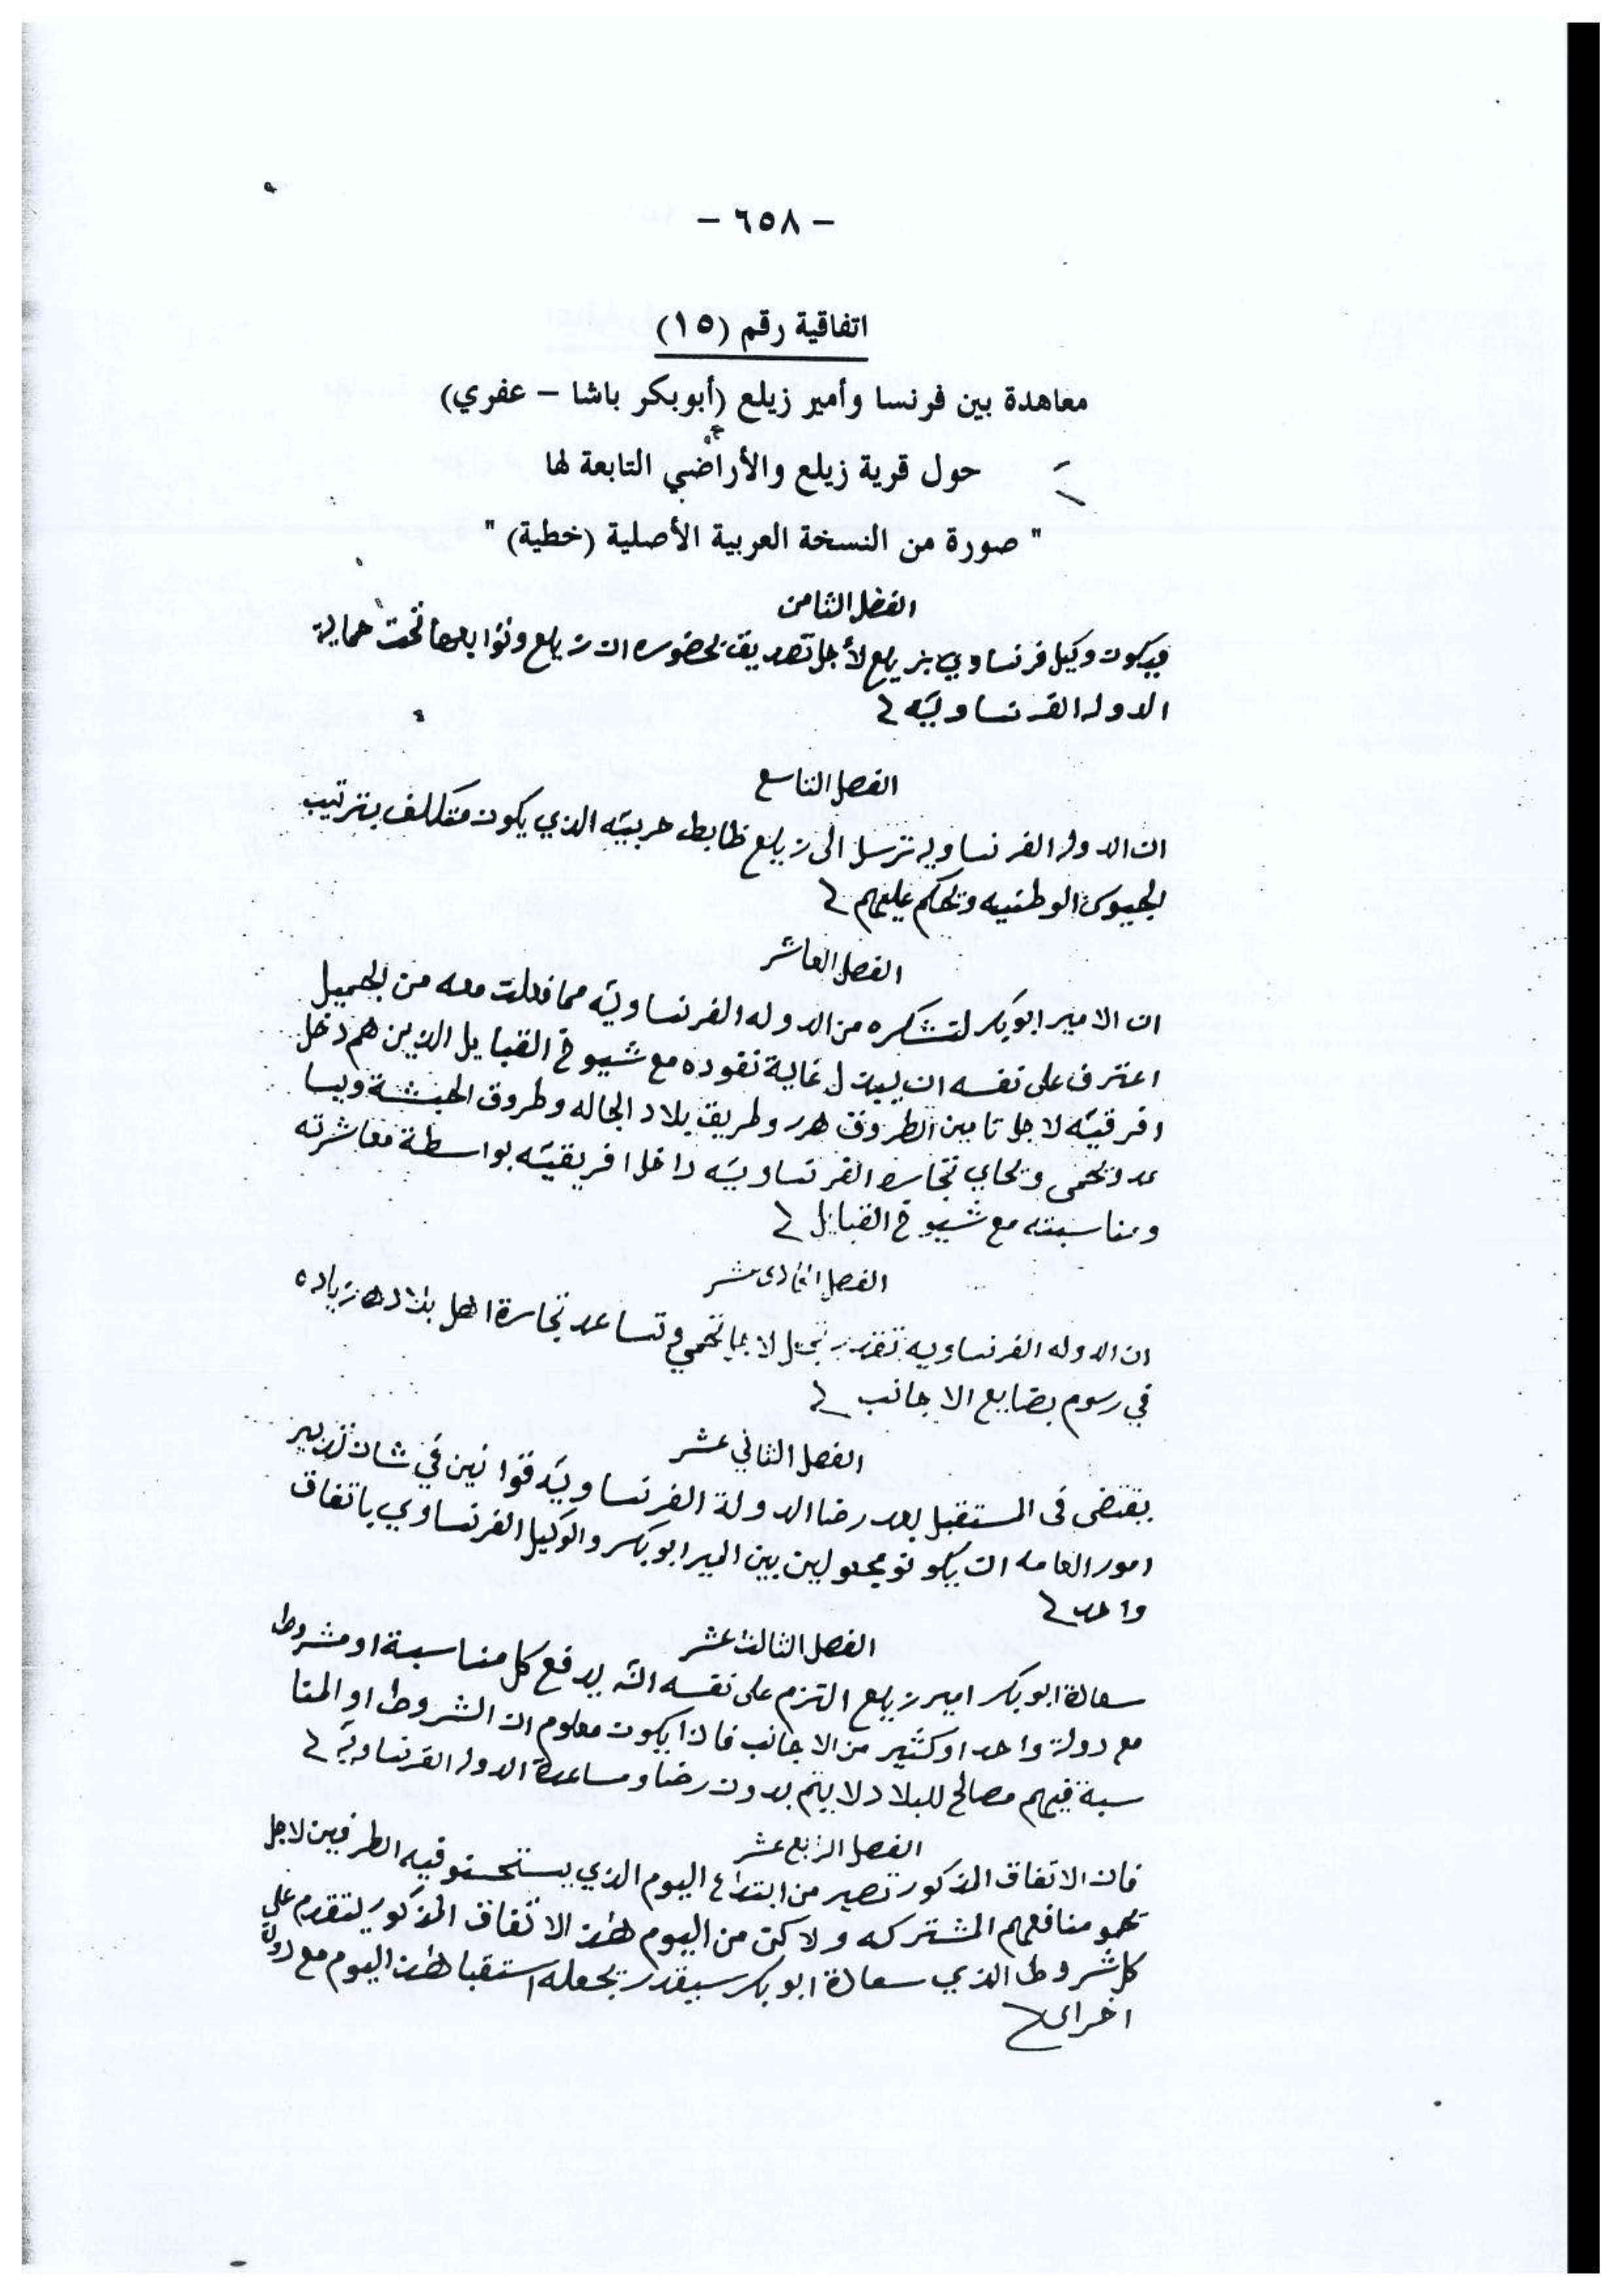 - ٦٥٨ -
اتفاقية رقم (١٥)
معاهدة بين فرنسا وأمير زيلع (أبوبكر باشا - عفري)
حول قرية زيلع والأراضي التابعة لها
" صورة من النسخة العربية الأصلية (خطية) "
الفصل الثامن
فيكون وكيل فرنساوي بزيلع لأجل تصديق بحضوره ان زيلع وتوابعها تحت حماية
الدوله الفرنساويّه
الفصل التاسع
ان الدوله الفرنساويه ترسل الى زيلع ظابط حربيّه الذي يكون متكلف بترتيب
الجيوش الوطنيه وتحكم عليهم
الفصل العاشر
ان الامير ابوبكر لتشكره من الدوله الفرنساويّه مما فعلت معه من الجميل
اعترف على نفسه ان يبذل غاية نقوده مع شيوخ القبايل الذين هم دخل
افرقيّه لاجل تامين الطروق هرر وطريق بلاد الجاله وطروق الحبشة ويسا
عد ويحمى ويحاي تجارة الفرنساويّه داخل افريقيّه بواسطة معاشرته
ومناسبته مع شيوخ القبايل
الفصل الحادى عشر
ان الدوله الفرنساويه تقدر تجعل تحمي وتساعد تجارة اهل بلاده زياده
في رسوم بضايع الاجانب
الفصل الثاني عشر
يقتضى فى المستقبل بعد رضا الدولة الفرنساويّه قوانين في شان تدبير
امور العامه ان يكونو مجعولين بين المير ابوبكر والوكيل الفرنساوي باتفاق
واحد
الفصل الثالث عشر
سعادة ابوبكر امير زيلع التزم على نفسه انّه يدفع كل مناسبة او مشروط
مع دولة واحد او كثير من الاجانب فاذا يكون معلوم ان الشروط او المنا
سبة فيهم مصالح للبلاد لا يتم بدون رضا ومساعدة الدوله الفرنساويّه
الفصل الرابع عشر
فان الاتفاق المذكور تصير من ابتداء اليوم الذي يستحسنو فيه الطرفين لاجل
تحمو منافعهم المشتركه ولاكن من اليوم هذا الاتفاق المذكور لتقدم على
كل شروط الذي سعادة ابوبكر سيقدر يجعله استقبا هذا اليوم مع دولة
اخراى